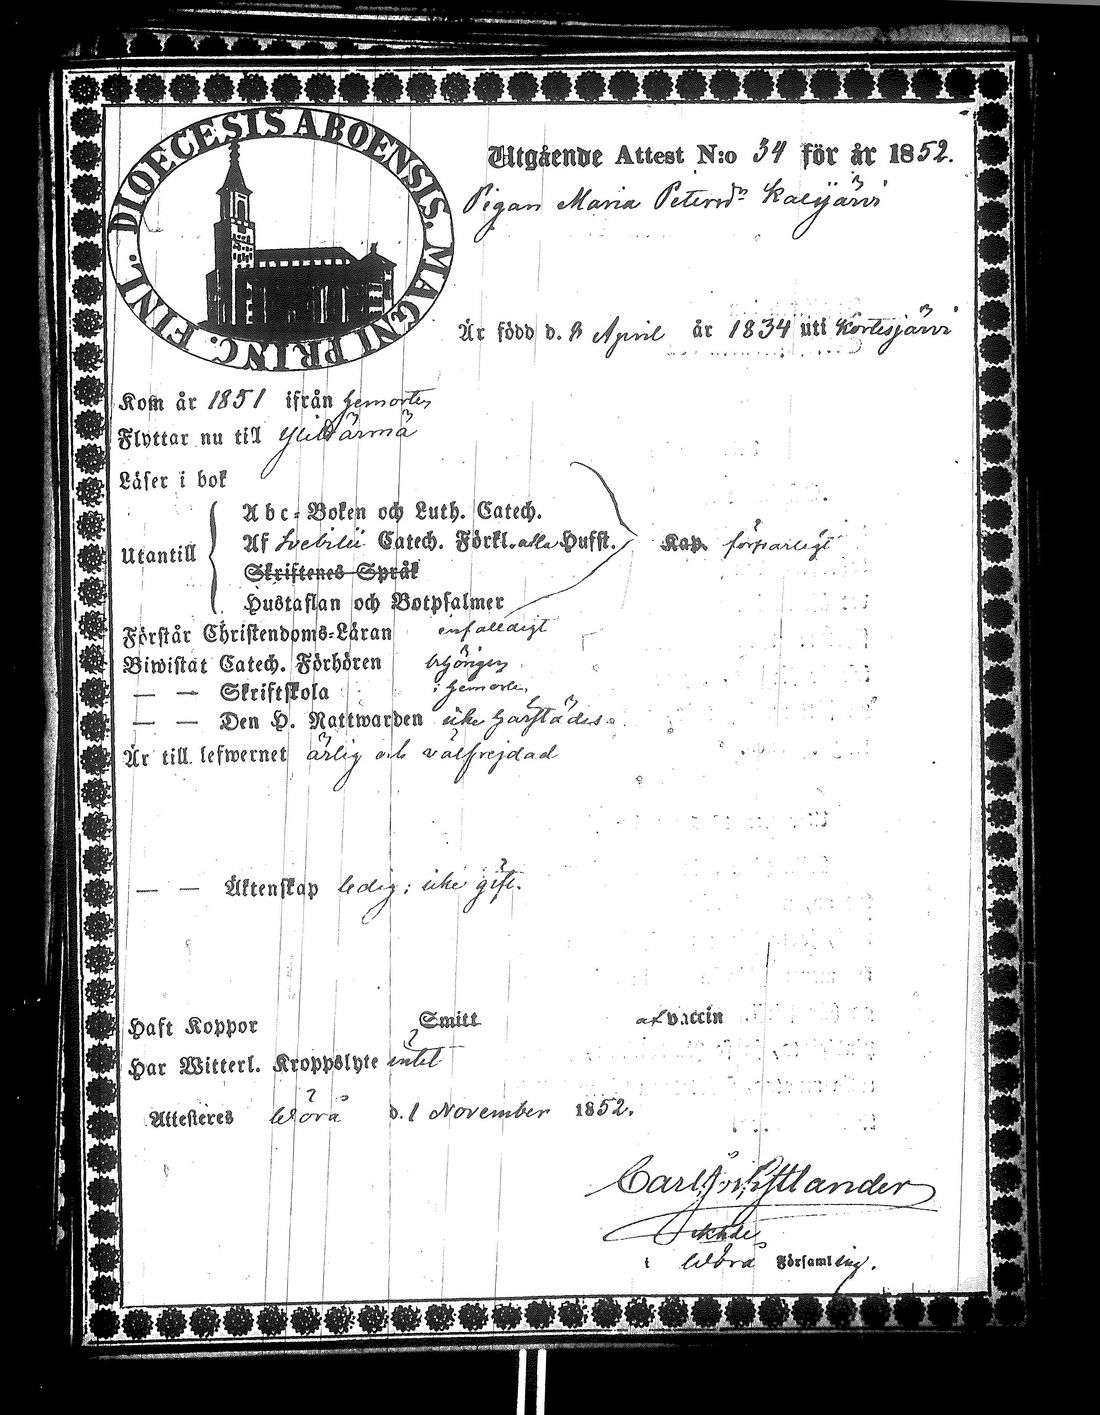 DIOECESIS ABOENSIS. MAGNI PRINC. FINL.
Utgående Attest N:o 34 för år 1852.
Pigan Maria Petersdr
Är född d. 8 April år 1834 uti Kortesjärvi
Kom år 1851 ifrån hemorten
Flyttar nu till Ylihärmä
Läser i bok
Utantill
Abc-Boken och Luth. Catech.
Af Svebilii Catech. Förkl. alla Hufst. Kap. försvarligt
Skriftenes Språk
Hustaflan och Botpsalmer
Förstår Christendoms-Läran enfalldigt
Biwistat Catech. Förhören
— — Skriftskola i hemorten
— — Den H. Nattwarden icke härstädes
Är till lefwernet ärlig och välfrejdad
— — Äktenskap ledig; icke gift.
Haft Koppor Smitt af vaccin
Har Witterl. Kroppslyte intet
Attesteres Wörå d. 1 November 1852.
Carl
i Wörå Församling.